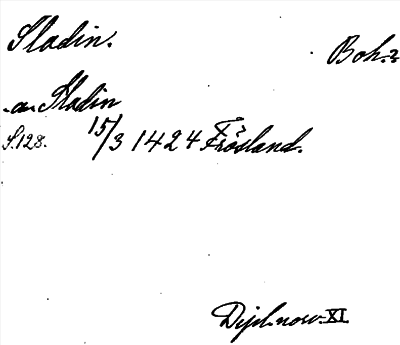 Sladin. Boh.?
a Sladin
S.128. 15/3 1424 Frösland.
Dipl. norv. XI